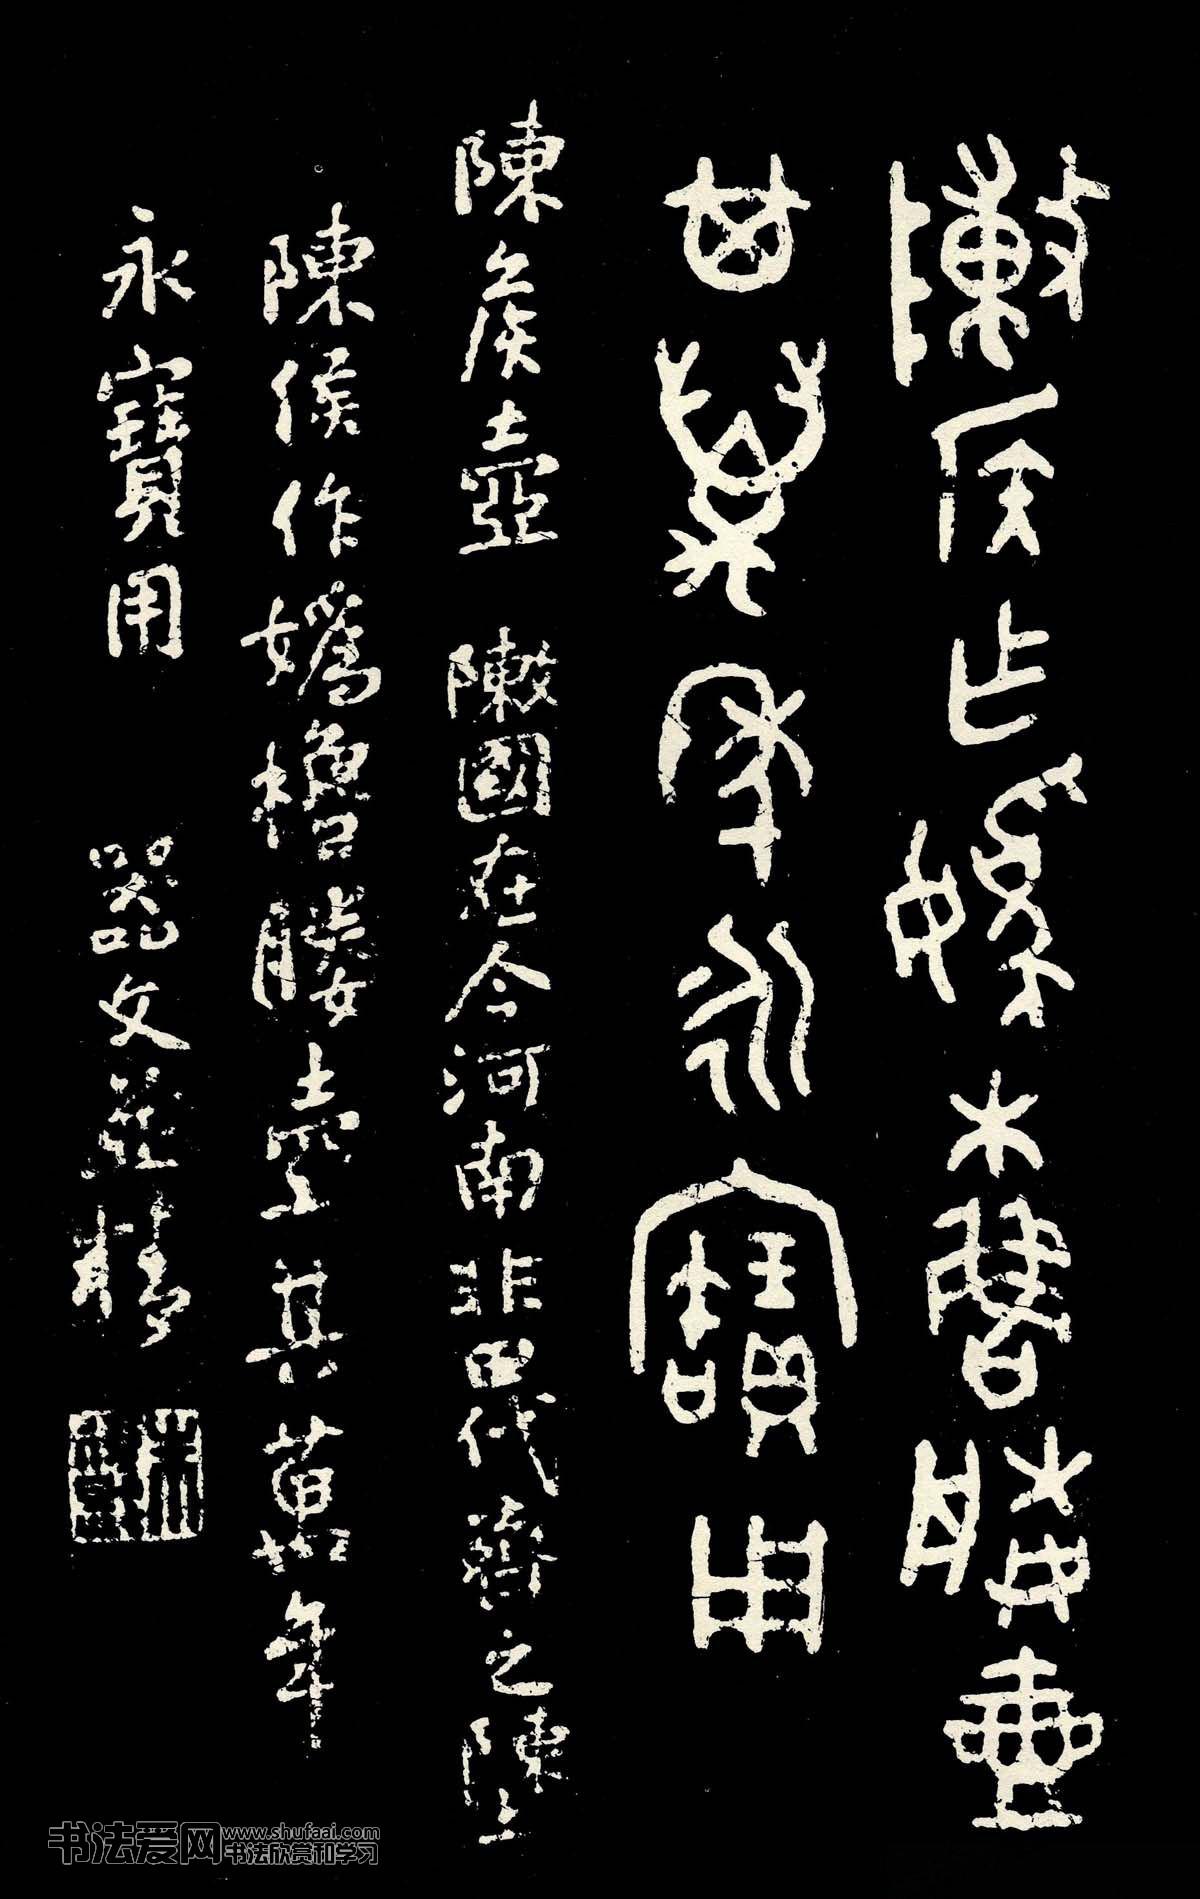 敶侯乍媯櫓媵壺
其萬年永寶用
陳矦壺 敶國在今河南非田代齊之陳也
陳侯作媯櫓媵壺其萬年
永寶用 器文並精
书法爱网 www.shufaai.com
书法欣赏和学习